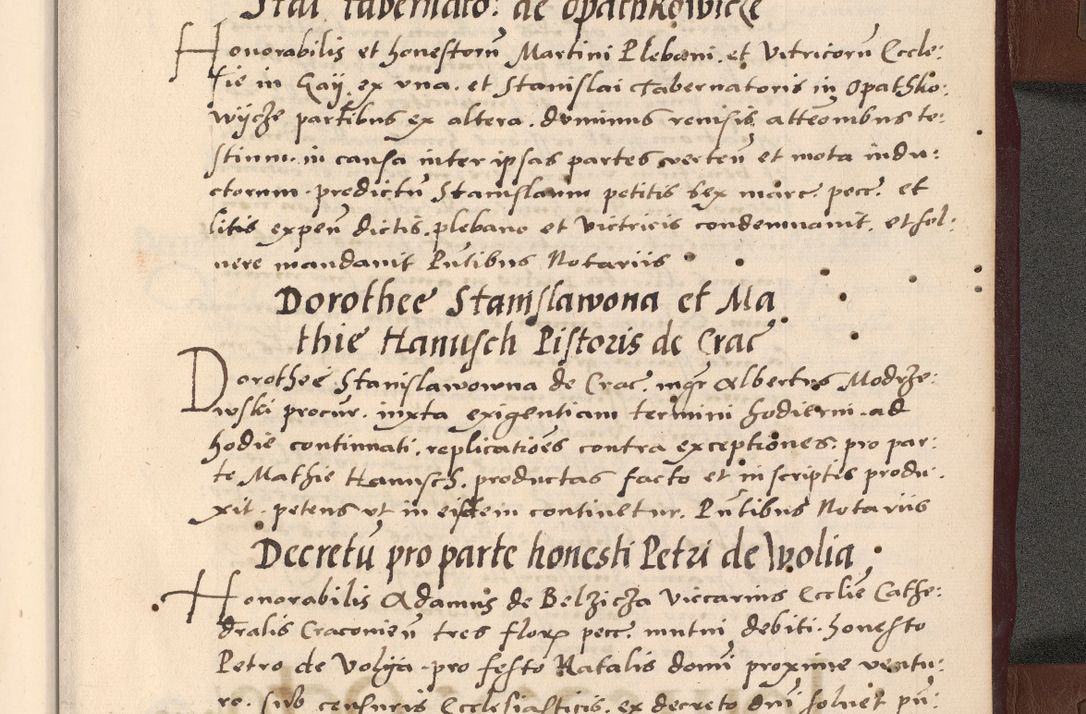 Stai tabernato: de opathkowicze
Honorabilis et honestorū Martini Plebani. et Vitricorū Eccle:
sie in Gay. ex vna. et Stanislai Tabernatoris in Opathko:
wycze partibus ex altera. dominus reuisis atteōnibus te:
stium. in causa inter ipsas partes verteñ et mota indu:
ctorum. predictū Stanislaum petitis sex marc. pecc. et
litis expeñ dictis. plebano et victricis condemnauit. et sol:
uere mandauit Pñtibus Notariis
Dorothee Stanislawona et Ma
thie Hanusch Pistoris de Crac
Dorothee Stanislawowna de Crac. mgr Albertus Modrze:
wski procur. iuxta exigentiam termini hodierni. ad
hodie continuati. replicatioēs contra exceptiones. pro par:
te Mathie Hanusch. productas facto et in scriptis produ.
xit. petens vt in eisdem continetur. Pñtibus Notariis
Decretū pro parte honesti Petri de Wolia
Honorabilis Adamus de Belzicza Viccarius Ecclie Cathe:
dralis Cracoñieñ tres flor pecc. mutui debiti. honesto
Petro de Volya. pro festo Natalis domi proxime ventu:
ro. sub censuris Ecclesiasticis. ex decreto dñi soluet pñ: